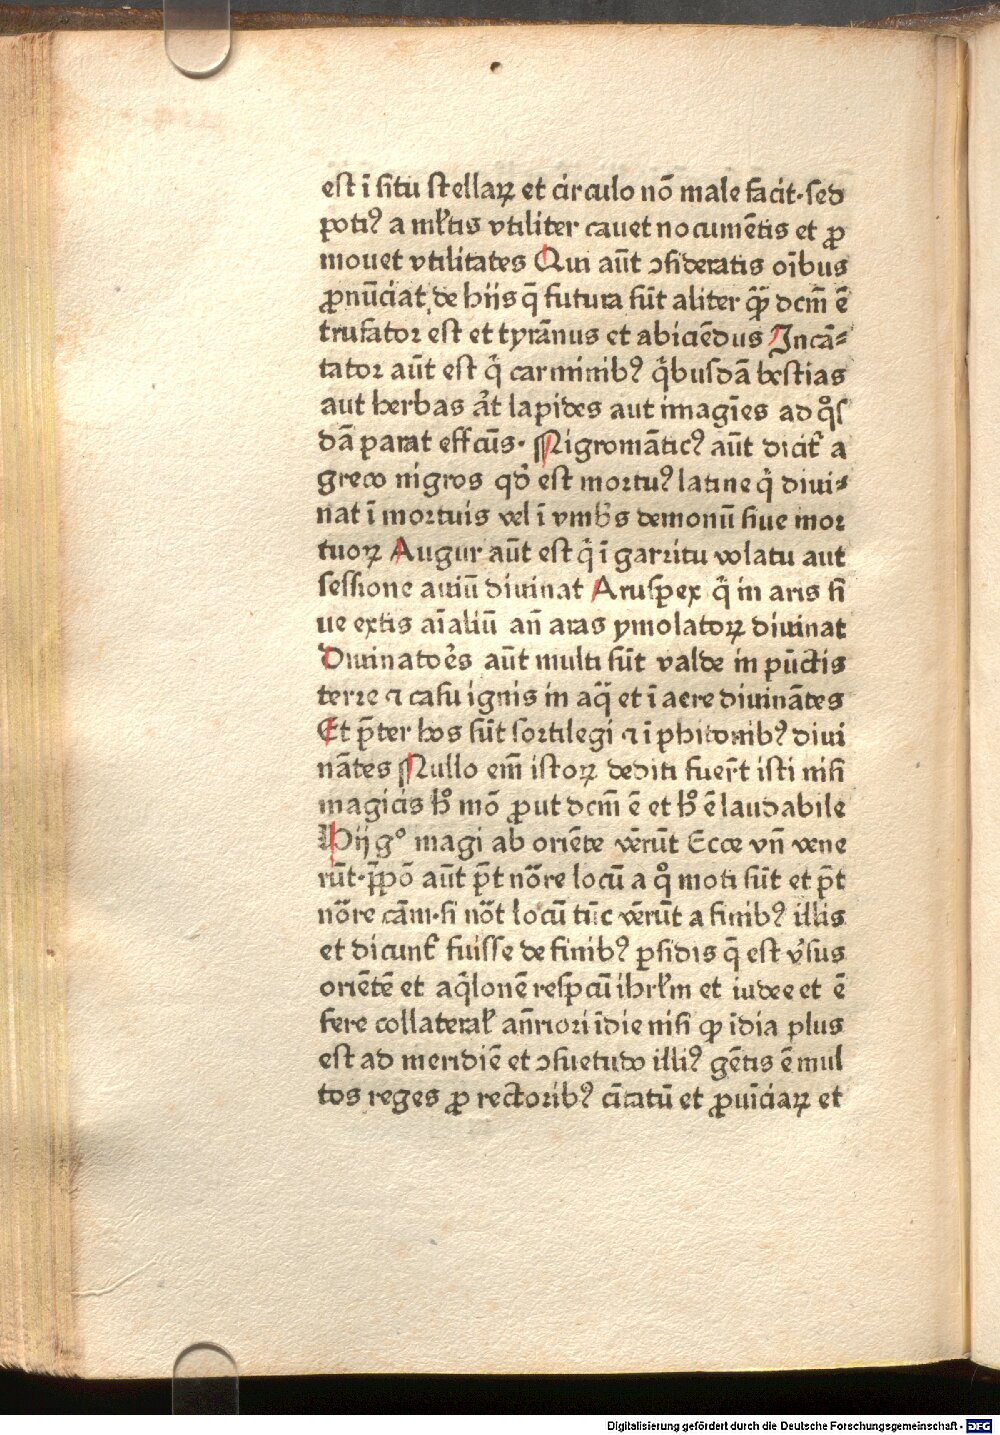 est ī situ stellaꝝ et circulo nō male facit·sed
potiꝰ a ml̅tis vtiliter cauet nocumētis et ꝓ
mouet vtilitates Qui aūt ↄsideratis oībus
ꝓnūciat de hijs q̄ futura sūt aliter qᷓꝫ dcm̄ ē
trufator est et tyrānus et abiciēdus Incā⸗
tator aūt est qͥ carminibꝰ qͥbusdā bestias
aut herbas aͭt lapides aut imagīes ad qͦs
dā parat effcūs· Nigromāticꝰ aūt dicit᷑ a
greco nigros qd̓ est mortuꝰ latine qͥ diui⸗
nat ī mortuis vel ī vmbͥs demonū siue mor
tuoꝝ Augur aūt est qͥ ī garritu volatu aut
sessione auiū diuinat Aruspex qͥ in aris si
ue extis aīaliū an̄ aras ymolatoꝝ diuinat
Diuinatoēs aūt multi sūt valde in pūctis
terre ⁊ casu ignis in aqᷓ et ī aere diuinātes
Et p̄ter hos sūt sortilegi ⁊ ī phitonibꝰ diui
nātes Nullo em̄ istoꝝ dediti fuer̄t isti nisi
magicis hͦ mō ꝓut dcm̄ ē et hͦ ē laudabile
Hij gͦ magi ab oriēte vēr̄ut Ecce vn̄ vene
rūt·p̄pō aūt p̄t nōre locū a qͦ moti sūt et p̄t
nōre cām·si nōt locū tūc vēr̄ut a finibꝰ illis
et dicunt᷑ fuisse de finibꝰ ꝑsidis q̄ est v̓sus
oriētē et aqͥlonē respcū ihrl̅m et iudee et ē
fere collateral̅ an̄riori īdie nisi ꝙ īdia plus
est ad meridiē et ↄsuetudo illiꝰ gētis ē mul
tos reges ꝓ rectoribꝰ ciuītatū et ꝓuīciaꝝ et
Digitalisierung gefördert durch die Deutsche Forschungsgemeinschaft - DFG